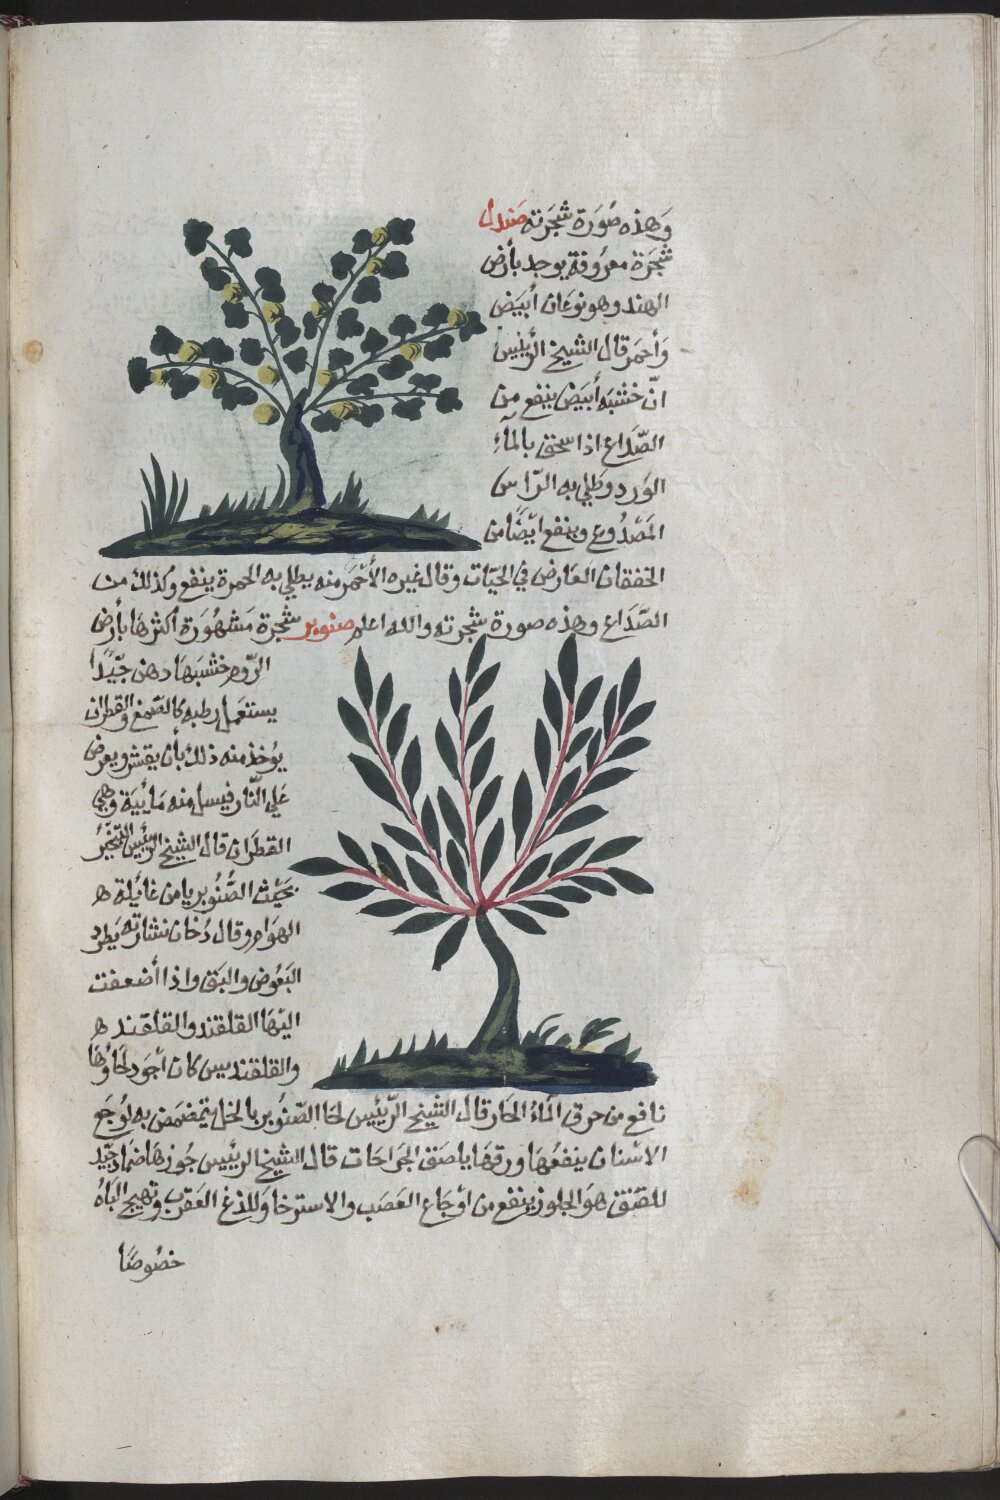 وَهذه صُورَة شجَرَته صَندل
شجَرَة معرُوفة يوجد بأرض
الهند وهو نوعَان أبيَض
وَأحمَر قال الشيخ الرئيس
انّ خشبَه أبيَض ينفع من
الصّدَاع اذا سحق بالمآء
الوَرد وطلي به الرّاس
المَصْدُوع وينفع ايْضًا من
الخفقان العَارض في الحيَات وقال غيره الأحْمَر منه يطلي به الحمرة ينفع وكذلك من
الصّدَاع وهذه صورة شجرته والله اعلم صنوبر شجرة مَشهُورَة أكثرهَا بأرض
الرّوم خشبَهَا دهن جيّدًا
يستعمَل رطبه كالصّمغ والقطران
يوُخذ منه ذلك بأن يقشر ويعرض
عَلي النّار فيسل منه مَائيَة وهي
القطرَان قال الشيخ الرئيس
بخَيْث الصُّنُوبر يا من غَائلة
الهوَام وقال دُخان نشارته يَطرد
البَعُوض والبَق واذا أضعفت
اليْهَا القلقند والقلقند
والقلقنديس كان أجوَد لحَاؤهَا
نافع من حرق المَاءُ الحَار قال الشيخ الرّيئس لحَا الصّنوبر بالخل يتمضمَض به لوَجَع
الاسْنان ينفعُهَا ورقهَا يلصَق الجرَاحَات قال الشيخ الرئيس جُوزهَا ضمَاد جيّد
للفتق هوَ الجلوز ينفع من أوْجَاع العَصَب والاسترخا وَللدْغ العَقرَب وتهيج البَاهُ
خصُوصًا